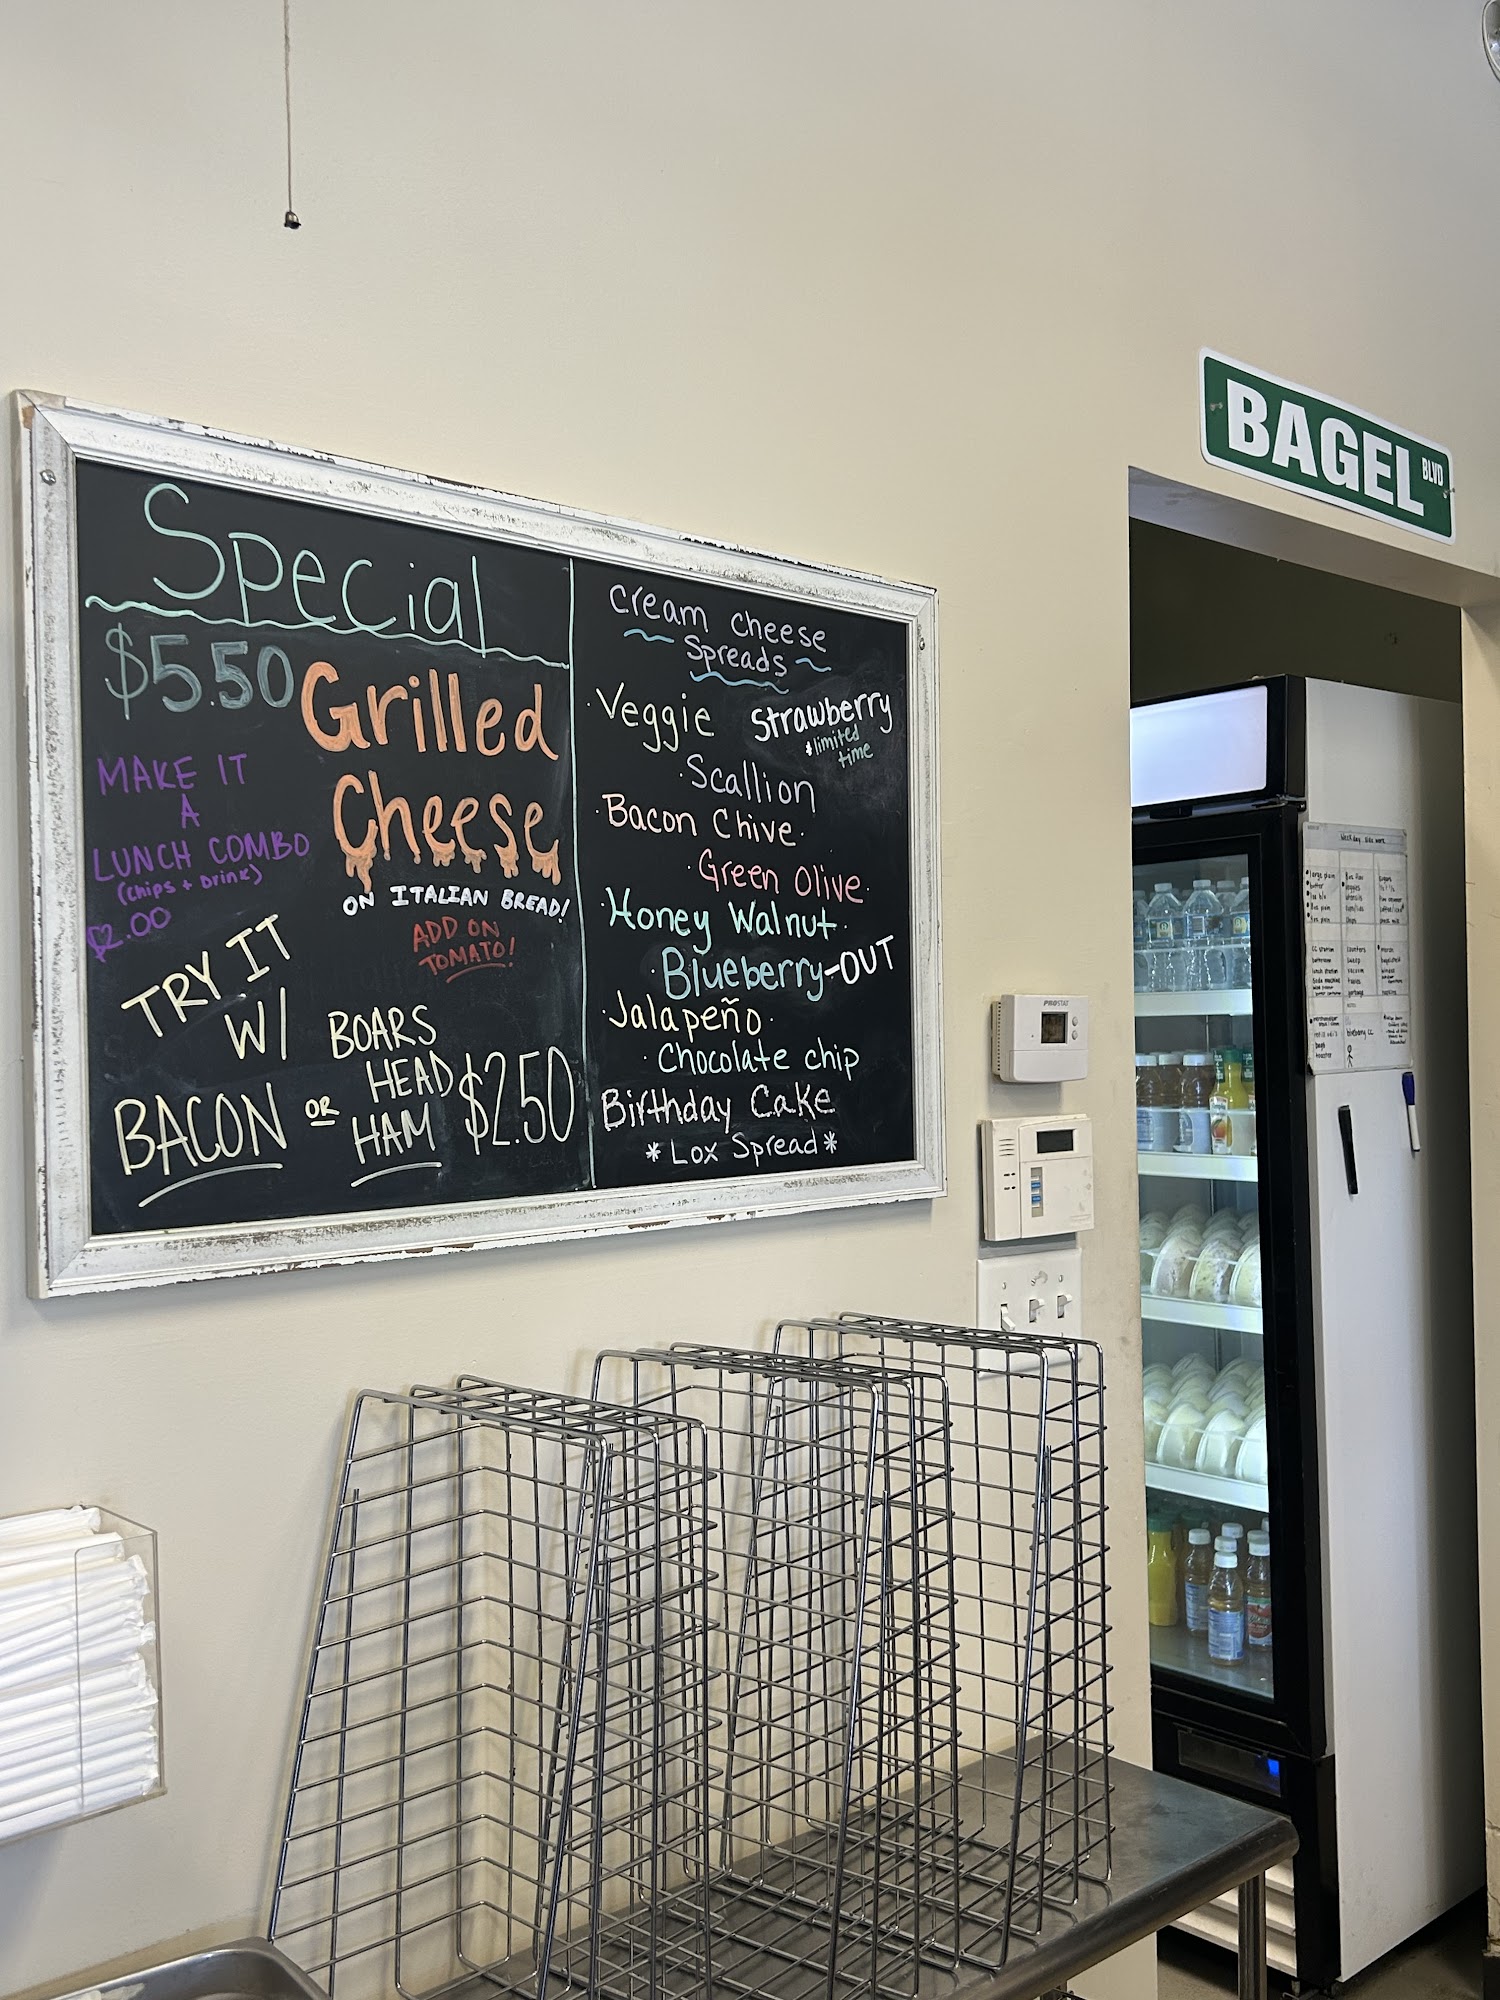 Special
$5.50 Grilled
Cheese
ON ITALIAN BREAD!
ADD ON
TOMATO!
MAKE IT
A
LUNCH COMBO
(chips + Drink)
$2.00
TRY IT
W/
BACON OR
BOARS
HEAD
HAM
$2.50
cream cheese
Spreads
·Veggie
Strawberry
*limited
time
·Scallion
·Bacon Chive·
·Green Olive·
·Honey Walnut·
·Blueberry-OUT
·Jalapeño·
·Chocolate chip
Birthday Cake
*Lox Spread*
BAGEL BLVD
PROSTAT